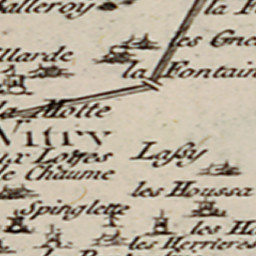 alleroy
la F
les Gne
llarde
la Fontain
la Motte
Vitry
ux Lottes
Lassy
le Chaume
les Houssa
Spinglette
les Ho
les Herrieres